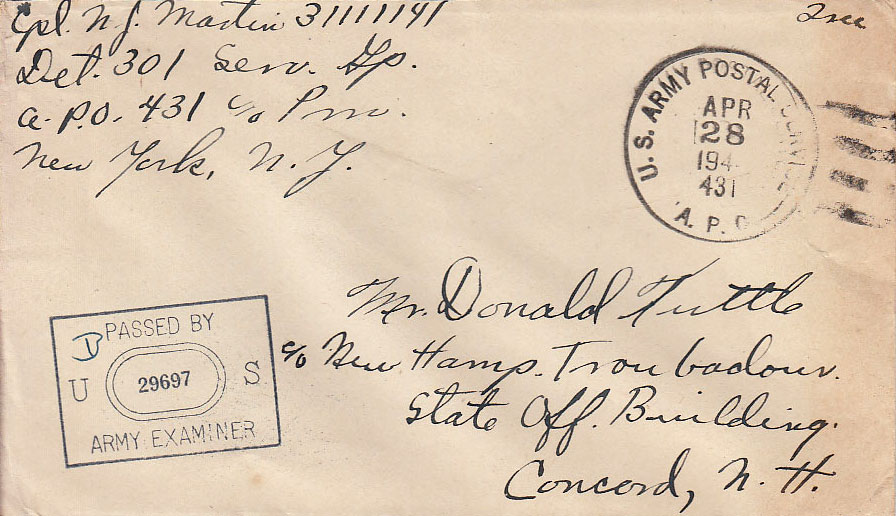 Cpl. N. J. Martin 31111141
Det. 301 Serv. Gp.
A.P.O. 431 c/o P.M.
New York, N. Y.
Free
U. S. ARMY POSTAL SERVICE
APR
28
194
431
A. P. O.
PASSED BY
B
U S
29697
ARMY EXAMINER
Mr. Donald Tuttle
c/o New Hamp. Troubadour.
State Off. Building.
Concord, N. H.